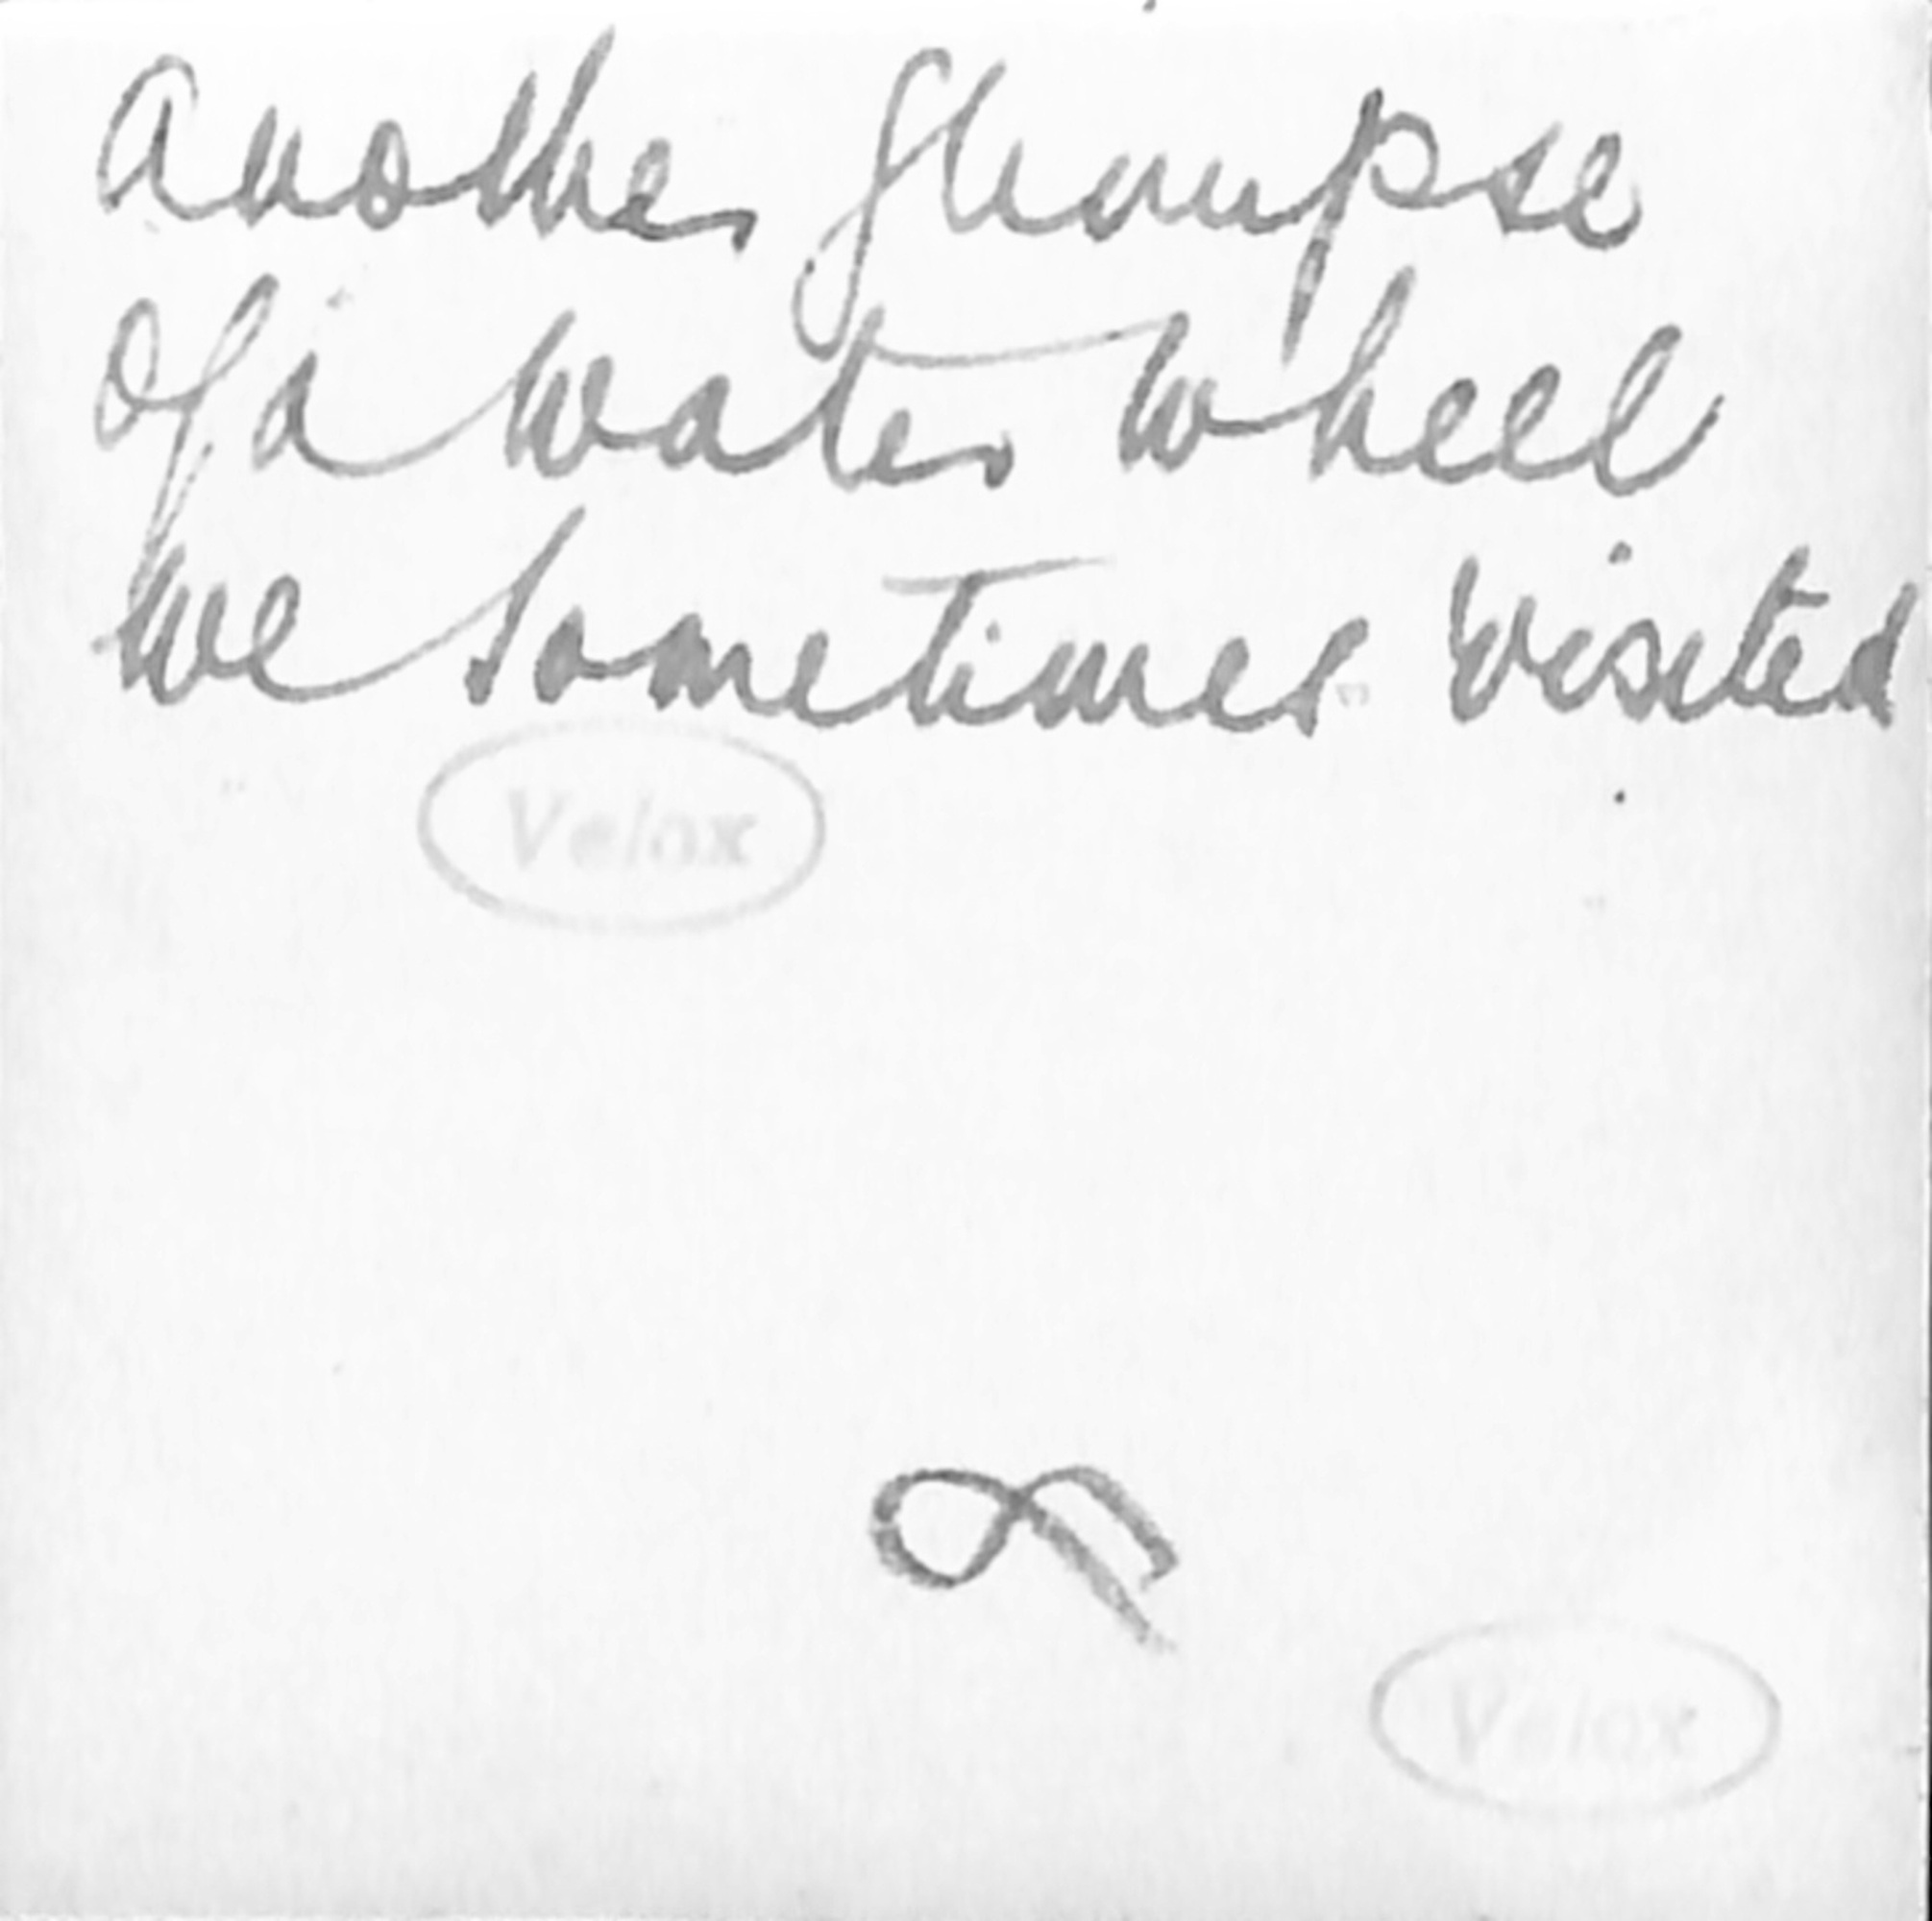 Another glimpse
of a water wheel
we sometimes visited
Velox
Velox